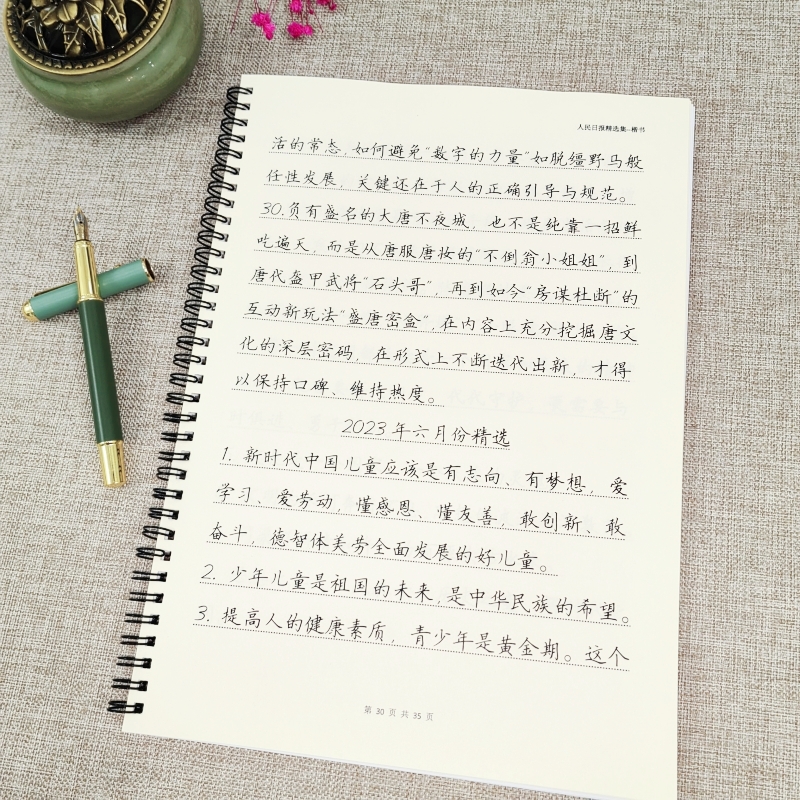 人民日报精选集-楷书
活的常态，如何避免“数字的力量”如脱缰野马般
任性发展，关键还在于人的正确引导与规范。
30.负有盛名的大唐不夜城，也不是纯靠一招鲜
吃遍天，而是从唐服唐妆的“不倒翁小姐姐”，到
唐代盔甲武将“石头哥”，再到如今“房谋杜断”的
互动新玩法“盛唐密盒”，在内容上充分挖掘唐文
化的深层密码，在形式上不断迭代出新，才得
以保持口碑、维持热度。
2023年六月份精选
1. 新时代中国儿童应该是有志向、有梦想，爱
学习、爱劳动，懂感恩、懂友善，敢创新、敢
奋斗，德智体美劳全面发展的好儿童。
2. 少年儿童是祖国的未来，是中华民族的希望。
3. 提高人的健康素质，青少年是黄金期。这个
第 30 页 共 35 页